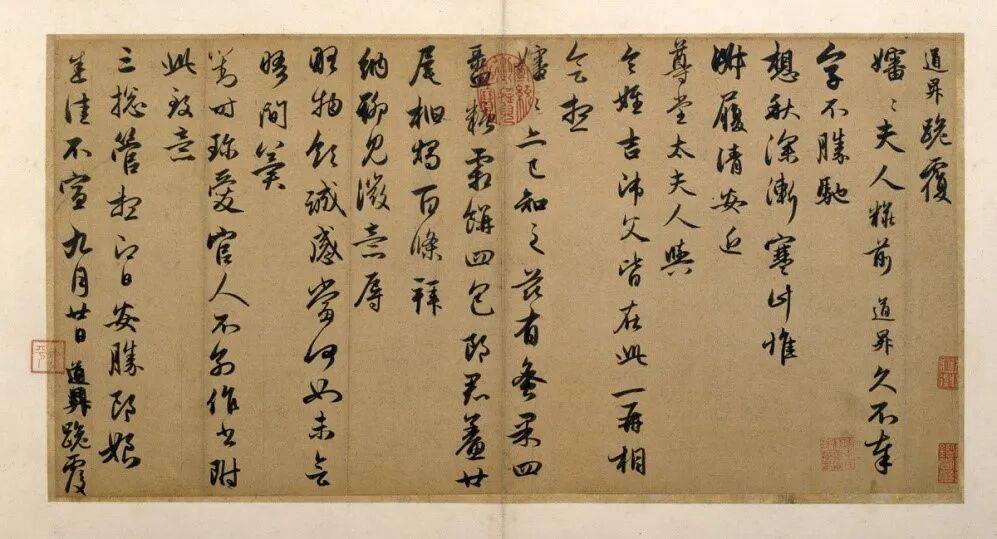 道昇跪覆
嬸〻夫人糚前 道昇久不奉
字不勝馳
想秋深漸寒計惟
淑履清安近
尊堂太夫人與
令姪吉師父皆在此一再相
會想
嬸〻亦已知之茲有蜜果四
盝糖霜餅四包郎君鯗廿
尾桕燭百條拜
納聊見微意辱
略物領誠感當何如未會
晤間冀
對時珍愛官人不別作書附
此致意
三總管想即日安勝郎娘
悉佳不宣 九月廿日 道昇跪覆